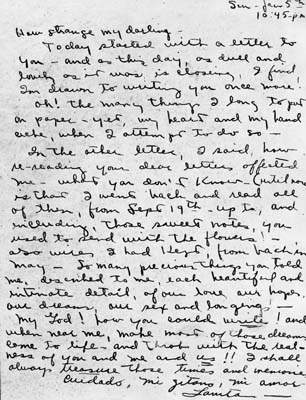 Sun - Jan 5th
10:45-pm
How strange my darling -
Today started with a letter to
you - and as this day, as dull and
lonely as it was, is closing, I find
I'm drawn to writing you once more!
oh! the many things I long to put
on paper - yet, my heart and my hand
ache, when I attempt to do so -
In the other letter, I said, how
re-reading your dear letters affected
me - what you don't know (until now)
is that I went back and read all
of them, from Sept 19th - up to, and
including, those sweet notes, you
used to send with the flowers -
also wires I had kept from back in
may - So many precious things you told
me, described to me, each beautiful and
intimate detail, of our love, our hopes
our dreams, our sex and longing -
My God! how you could write! and
when near me, make most of those dreams
come to life - and throb with the real-
ness of you and me and us!! I shall
always treasure those times and memories
Cuidado, mi gitano, mi amor